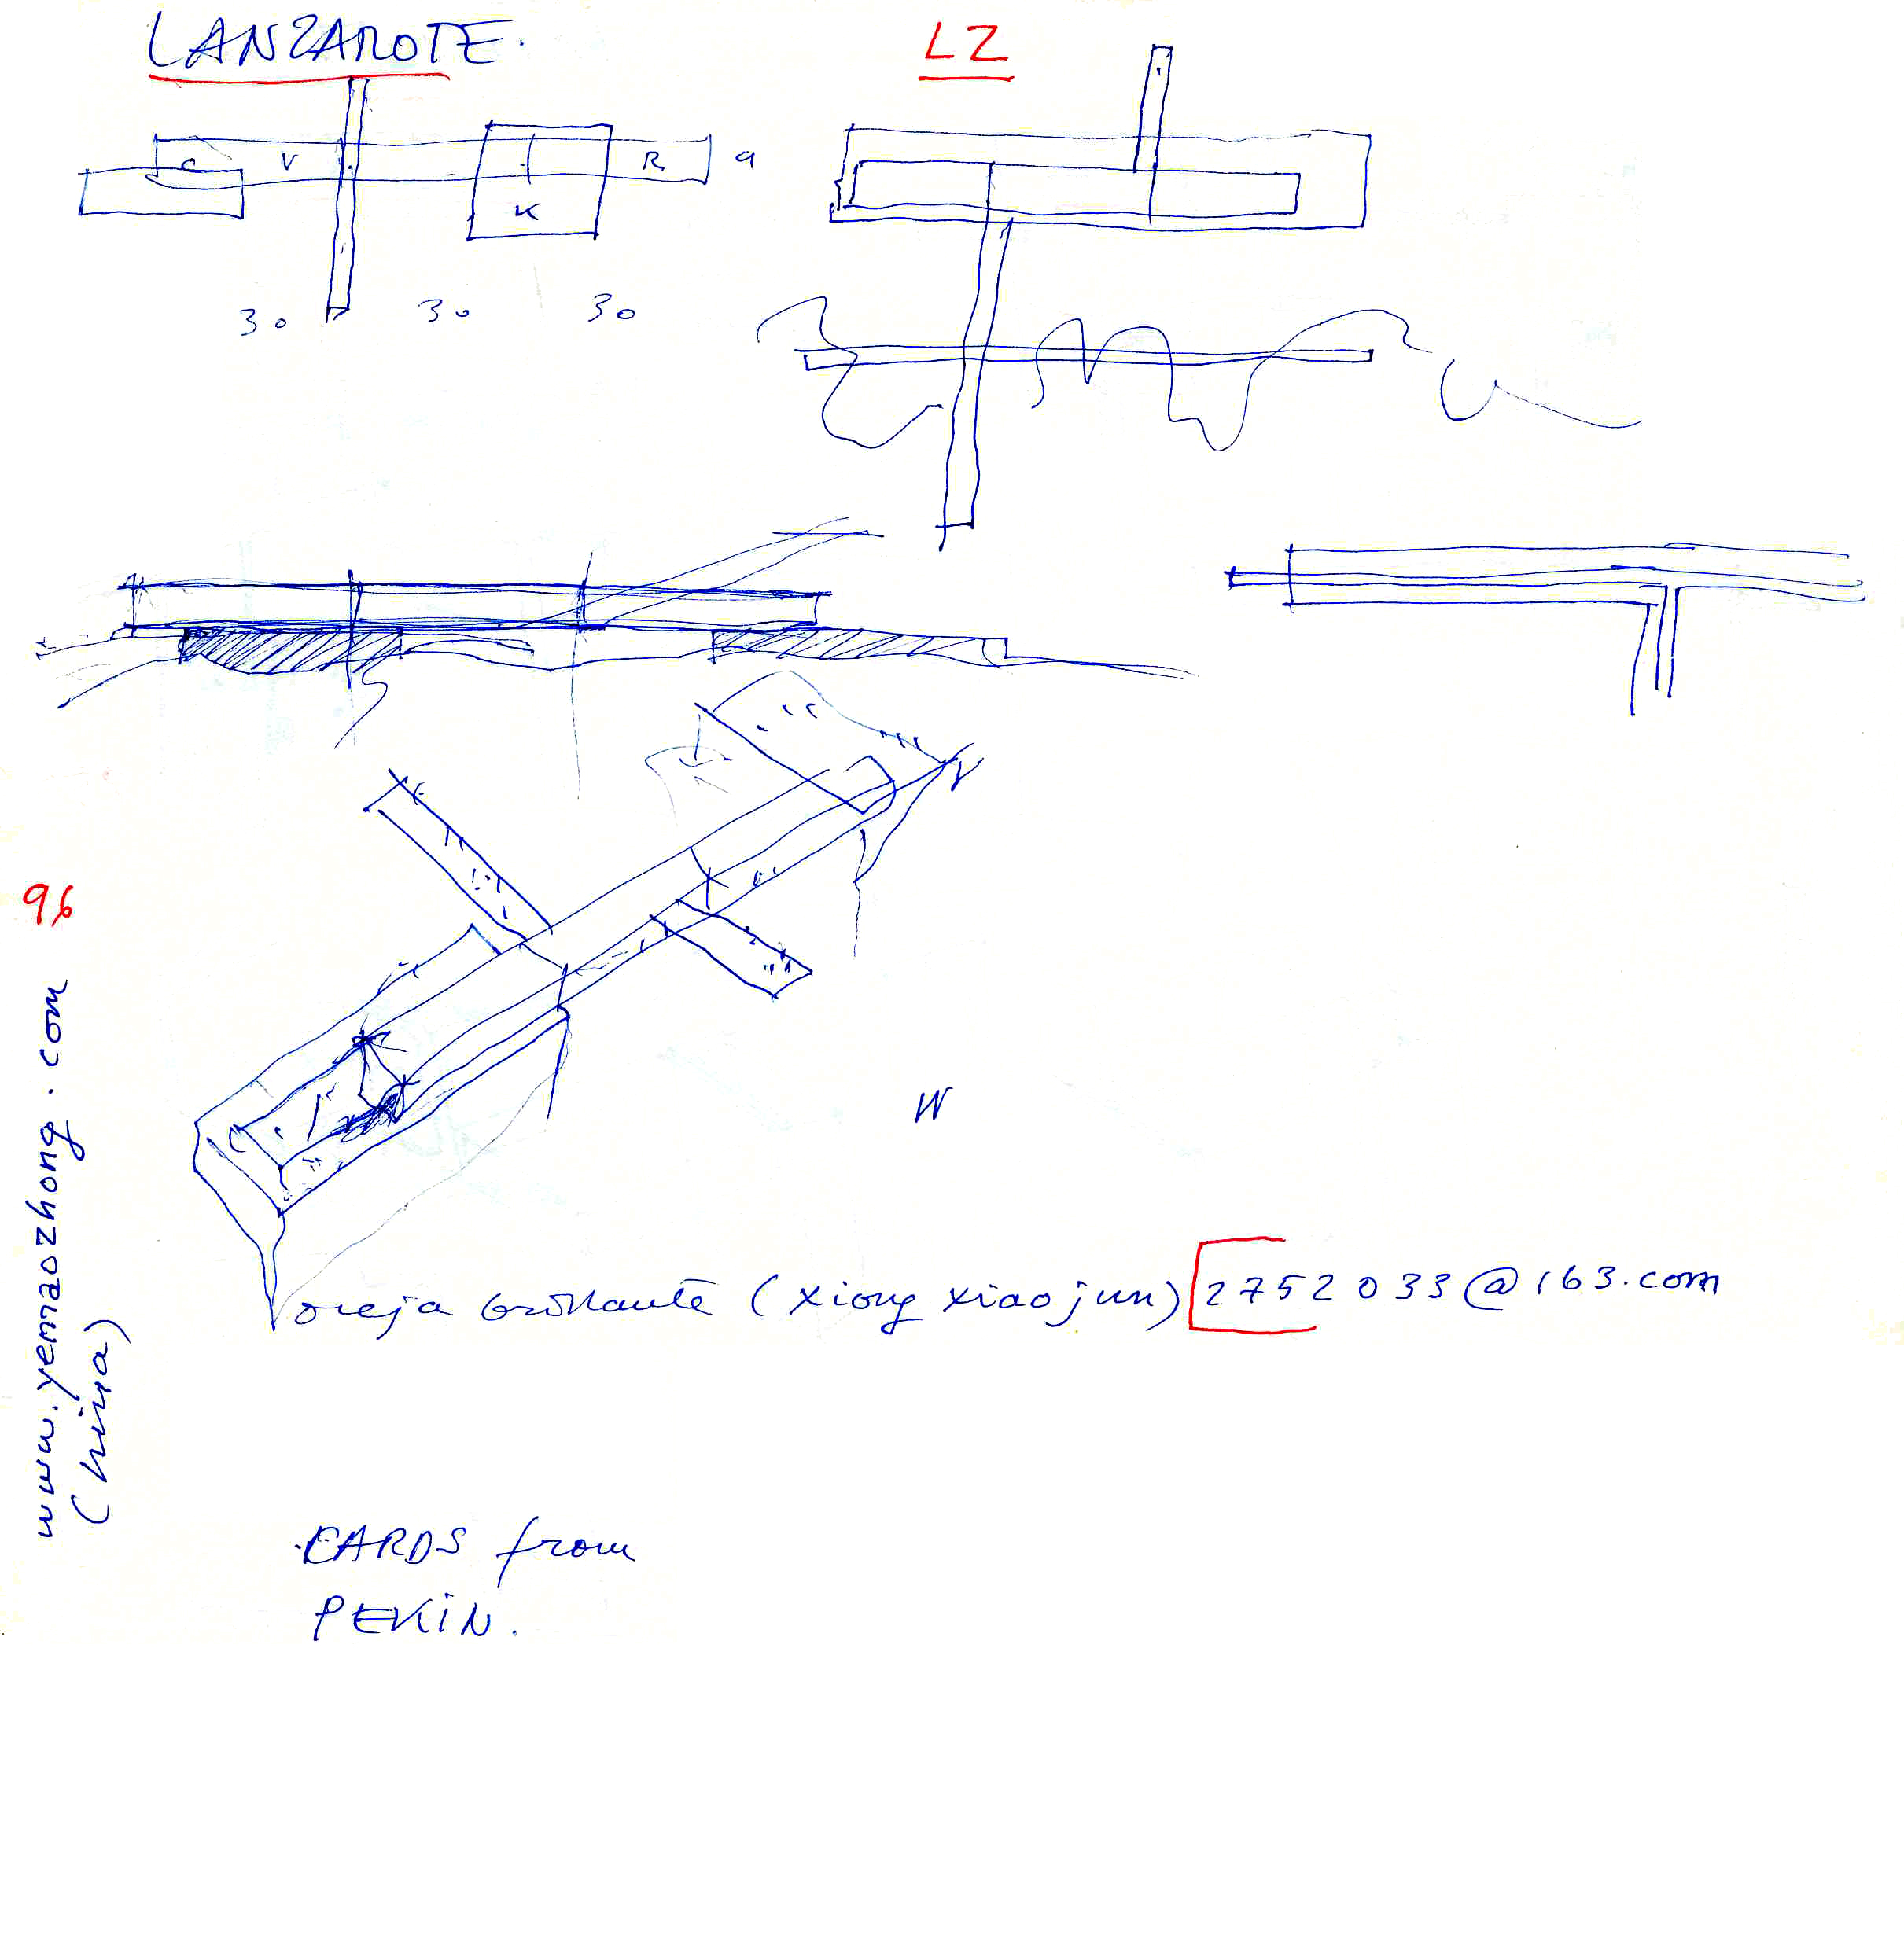 LANZAROTE.
LZ
C V R 9
K
30 30 30
96
www.yemaozhong.com
(nina)
N
oreja brillante (xiong xiaojun) 2752033@163.com
CARDS from
PEKIN.